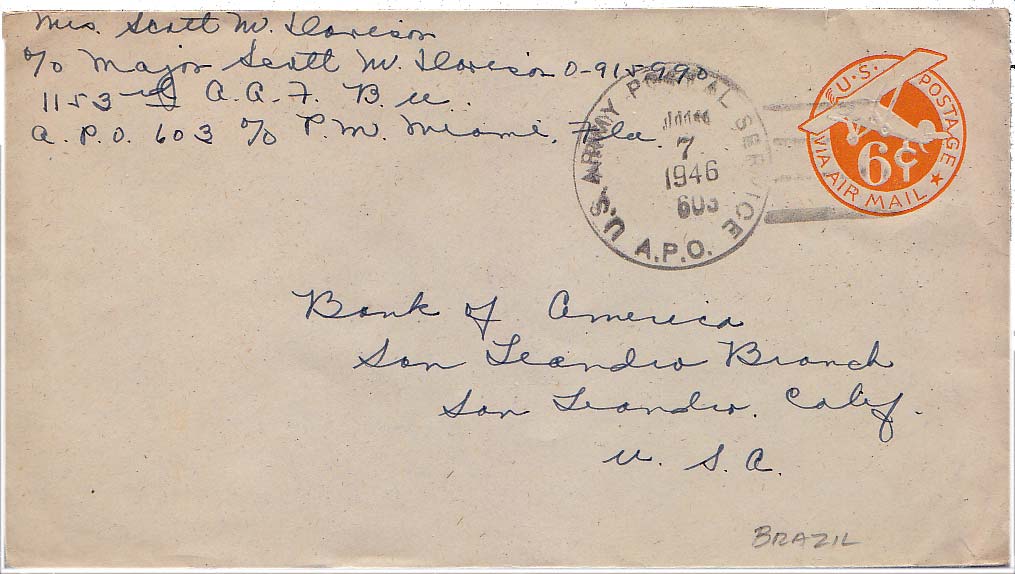 Mrs. Scott M.
c/o Major Scott M. 0-915990
1153rd A.A.F. B.U.
A.P.O. 603 c/o P.M. Miami, Fla.
U.S. ARMY POSTAL SERVICE
7
1946
603
A.P.O.
U.S. POSTAGE
6¢
VIA AIR MAIL
Bank of America
San Leandro Branch
San Leandro, Calif.
U. S. A.
BRAZIL